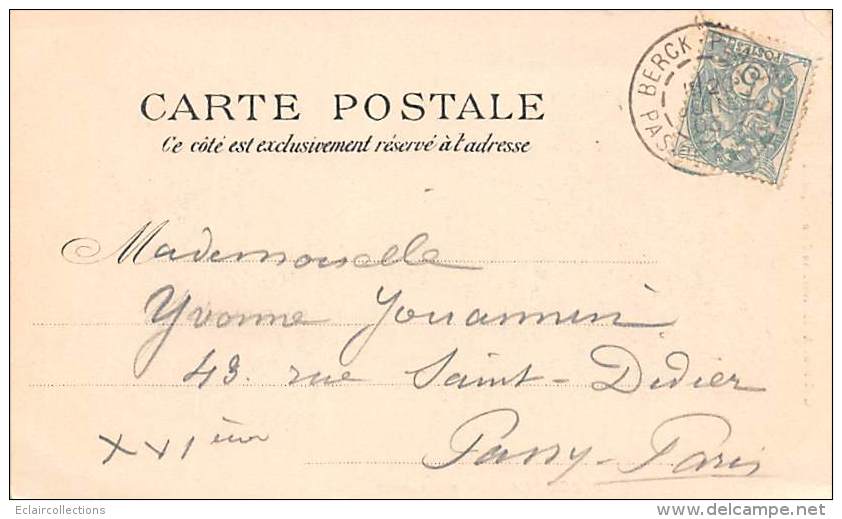 BERCK-P
PAS
POSTES
CARTE POSTALE
Ce côté est exclusivement réservé à l'adresse
Mademoiselle
Yvonne Jouannin
43. rue Saint-Didier
XVIème Passy-Paris
Eclaircollections
www.delcampe.net